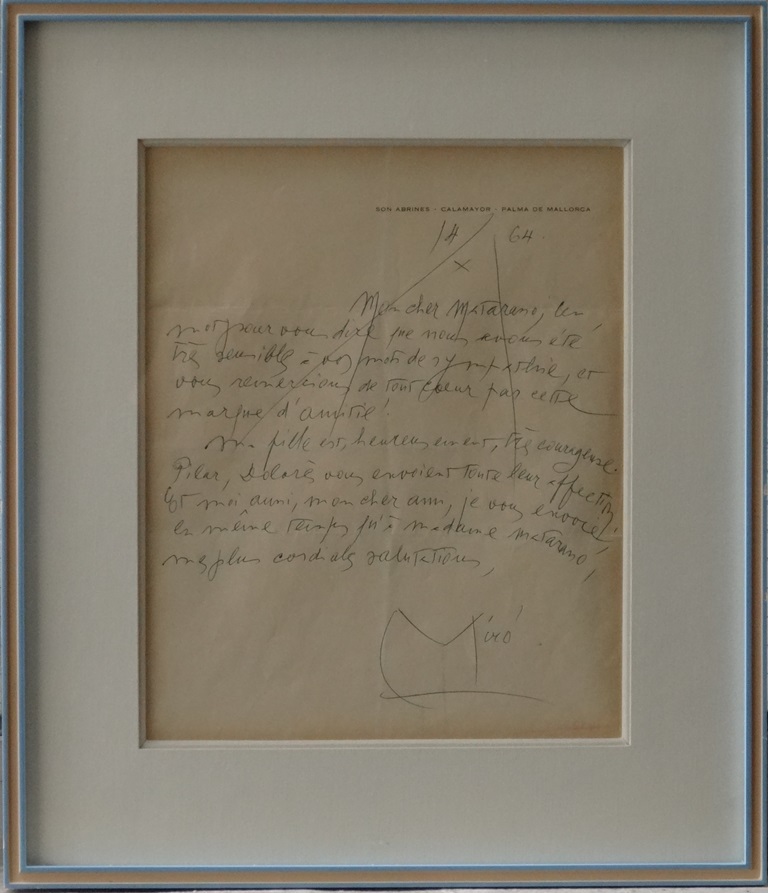 SON ABRINES - CALAMAYOR - PALMA DE MALLORCA
14 64.
X
Mon cher Matarasso, un
mot pour vous dire que nous avons été
très sensibles à vos mots de sympathie, et
vous remercions de tout coeur par cette
marque d'amitié.
Ma fille est, heureusement, très courageuse.
Pilar, Dolorès vous envoient toute leur affection,
Et moi aussi, mon cher ami, je vous envoie,
en même temps qu'à madame Matarasso,
mes plus cordiales salutations,
Miró.